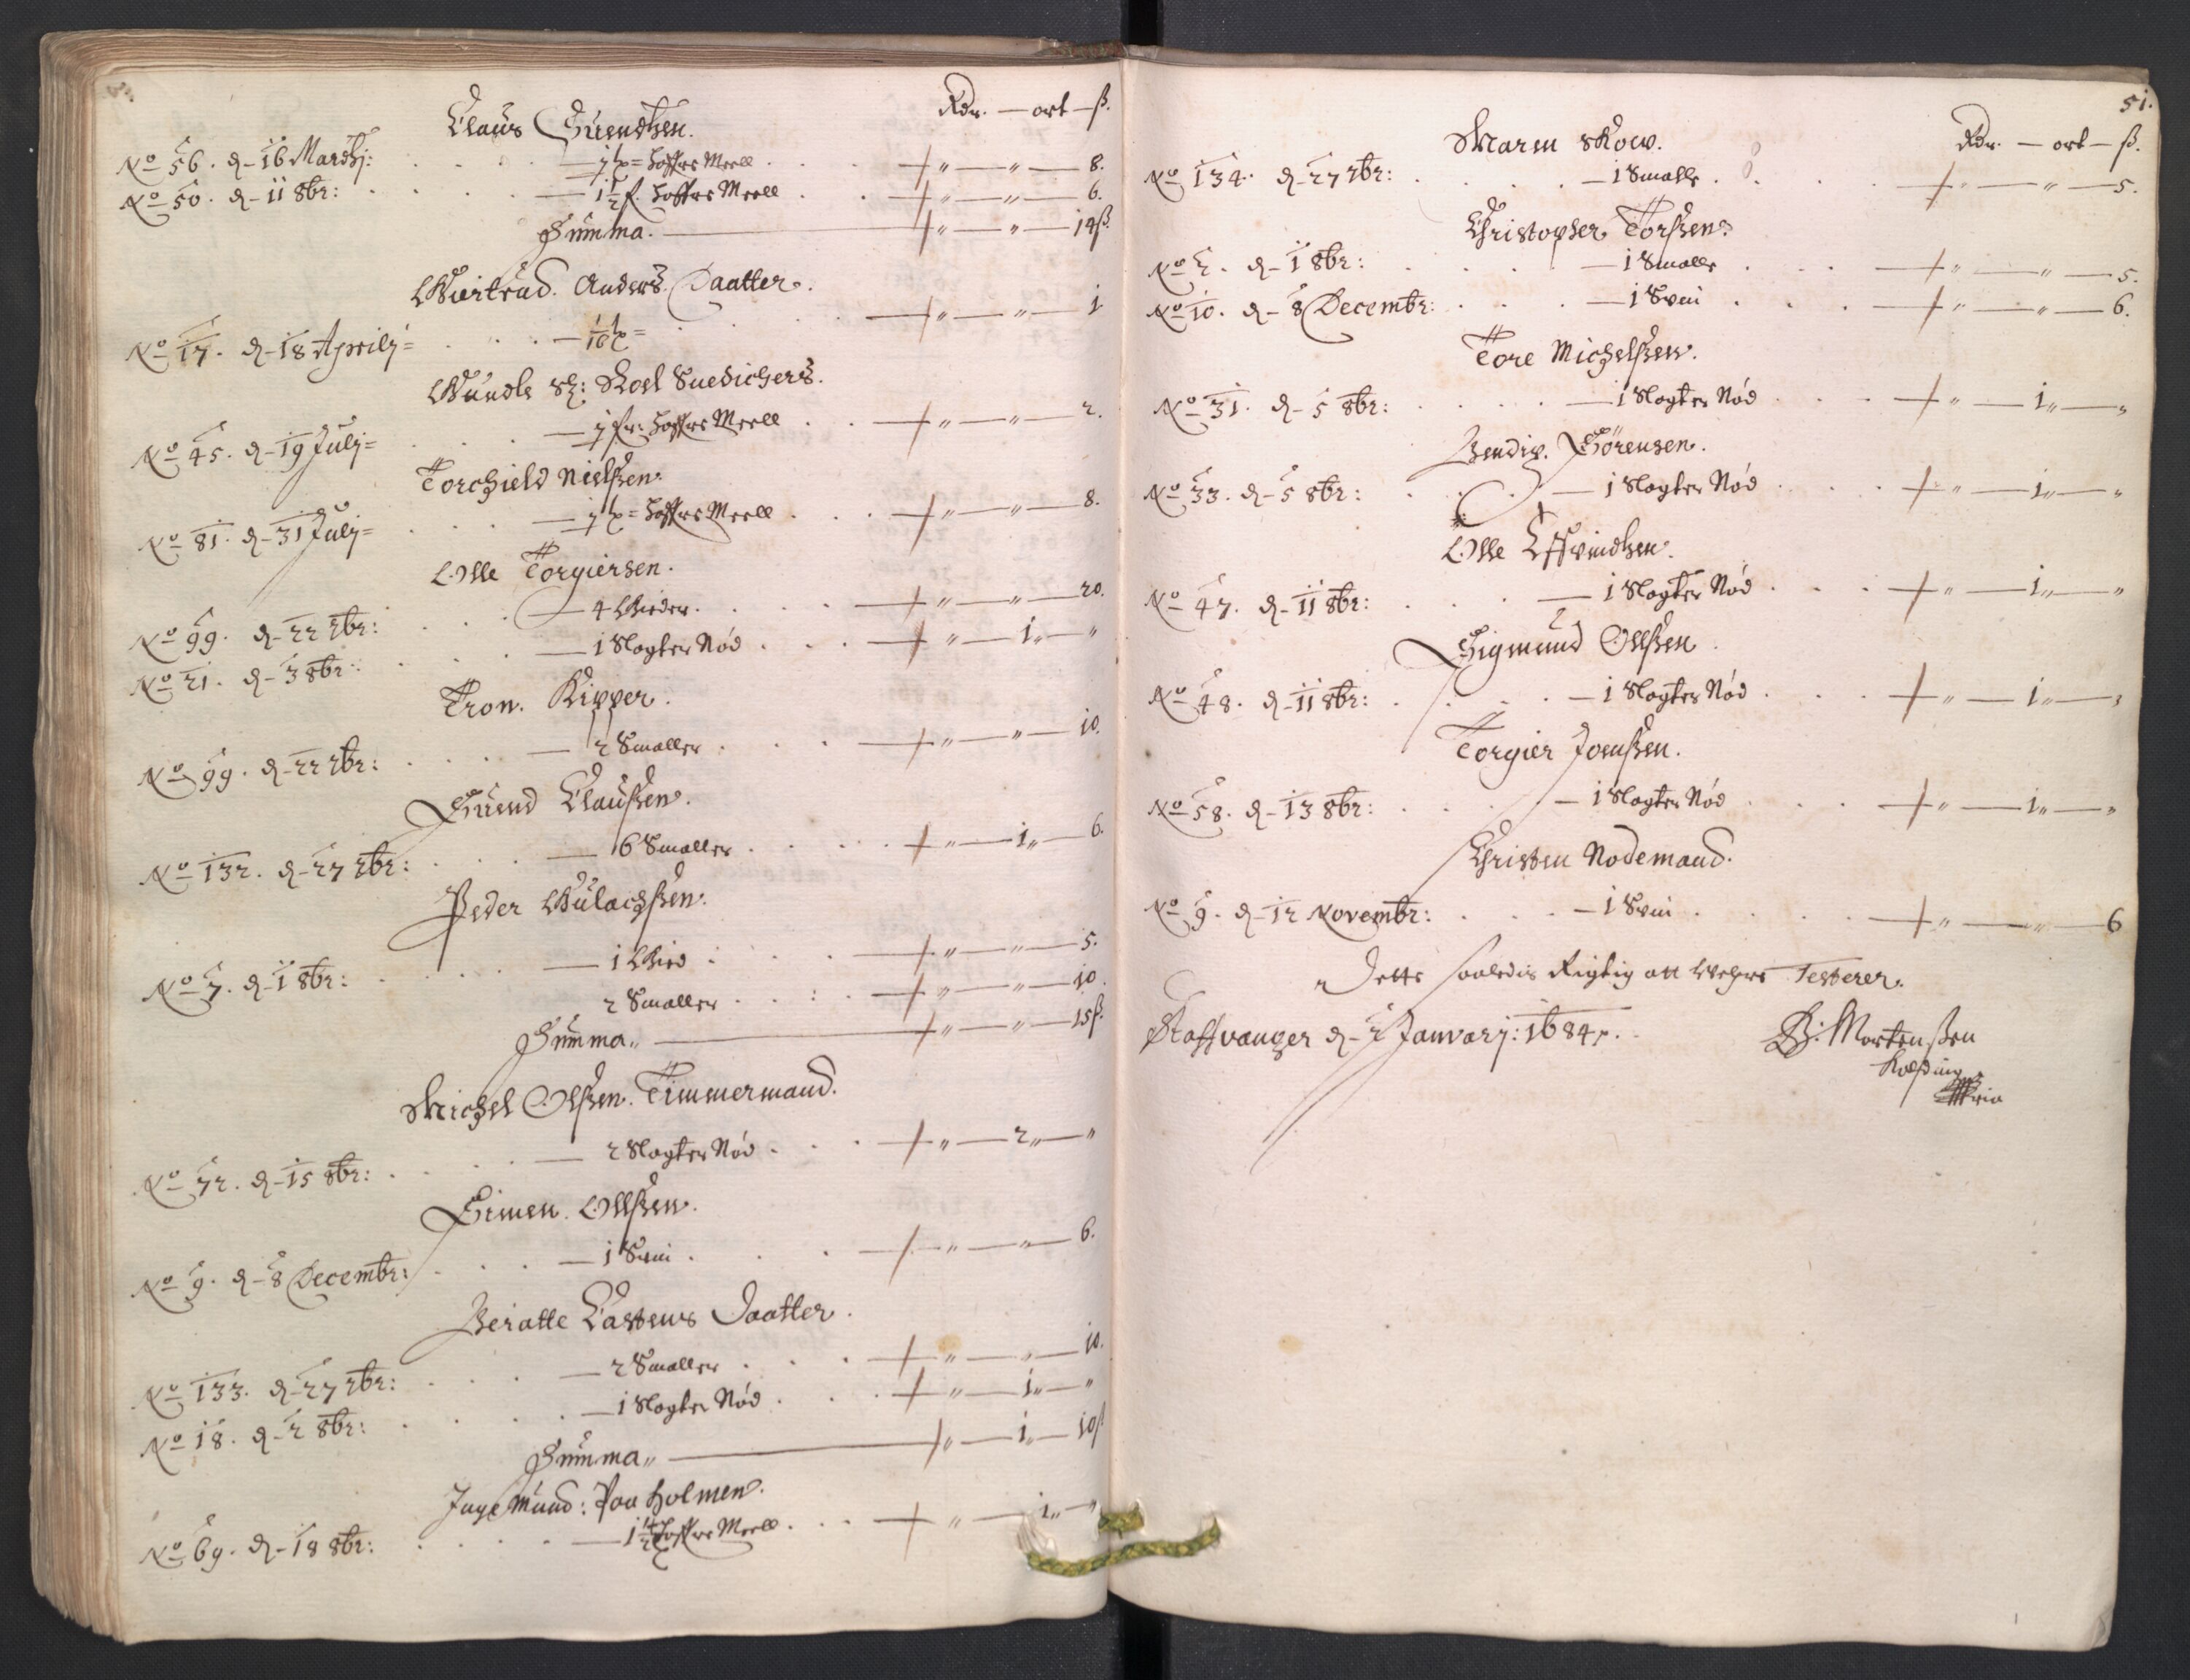 Rdr. — ort — ß.
Claus Suendsen.
No 56. d. 16 Martij: . . . — j tp= Haffre Meell . . . „ — „ — 8.
No 50. d. 11 8br: . . . — 1½ f. Haffre Meell . . „ — „ — 6.
Summa. — „ — „ — 14ß.
Giertrud Anders Daatter.
No 17. d. 18 Aprily= . . . — 1/16 tp= . . . „ — „ — 1
Gunde Sl: Roel Snedichers.
No 45. d. 19 July= . . . — j fr: Haffre Meell . . „ — „ — 2.
Torchield Nielßen.
No 81. d. 31 July= . . . — j tp= Haffre Meell . . . „ — „ — 8.
Olle Torgiersen.
No 99. d. 22 7br: . . . — 4 Gieder. . . . „ — „ — 20.
No 21. d. 3 8br: . . . — 1 Slagter Nød . . . „ — 1 „ — „
Tron Kipper.
No 99. d. 22 7br: . . . — 2 Smaller . . . „ — „ — 10.
Suend Claußen.
No 132. d. 27 7br: . . . — 6 Smaller . . . . „ — 1 „ — 6.
Peder Gulachßen.
No 7. d. 1 8br: . . . — 1 Gied . . . „ — „ — 5.
2 Smaller . . . „ — „ — 10.
Summa „ — „ — „ — 15ß.
Michel Olßen Timmermand.
No 72. d. 15 8br: . . . — 2 Slagter Nød . . . „ — 2 „ — „
Simen Ollßen.
No 9. d. 8 Decembr: . . . — 1 Suin . . . „ — „ — 6.
Beratte Castens Daatter.
No 133. d. 27 7br: . . . — 2 Smaller . . . „ — „ — 10.
No 18. d. 2 8br: . . . . — 1 Slagter Nød . . . „ — 1 „ — „
Summa „ — „ — 1 „ — 10ß
Ingemund: Paa Holmen.
No 69. d. 18 8br: . . . . — 1½ Haffre Meell . . . „ — 1 „ — „
51.
Rdr. — ort — ß.
Maren Skow.
No 134. d. 27 7br: . . . . — 1 Smalle . . . . „ — „ — 5.
Christopher Torßen.
No 2. d. 1 8br: . . . . — 1 Smalle . . . „ — „ — 5.
No 10. d. 8 Decembr: . . . — 1 Suin . . . „ — „ — 6.
Tore Michelßen.
No 31. d. 5 8br: . . . . — 1 Slagter Nød . . . „ — 1 „ — „
Bendix Sørensen.
No 33. d. 5 8br: . . . — 1 Slagter Nød . . . . „ — 1 „ — „
Olle Effvindsen.
No 47. d. 11 8br: . . . — 1 Slagter Nød . . . „ — 1 „ — „
Sigmund Olßen.
No 48. d. 11 8br: . . . . — 1 Slagter Nød . . . „ — 1 „ — „
Torgier Joenßen.
No 58. d. 13 8br: . . . — 1 Slagter Nød . . . „ — 1 „ — „
Christen Nodemand.
No 9. d. 12 Novembr: . . . — 1 Suin . . . . „ — „ — 6
Dette saaledis Rigtig att Wehre Testerer.
Staffvanger d. 2 Janvarj: 1684.
B: Mortenßen
Kolding